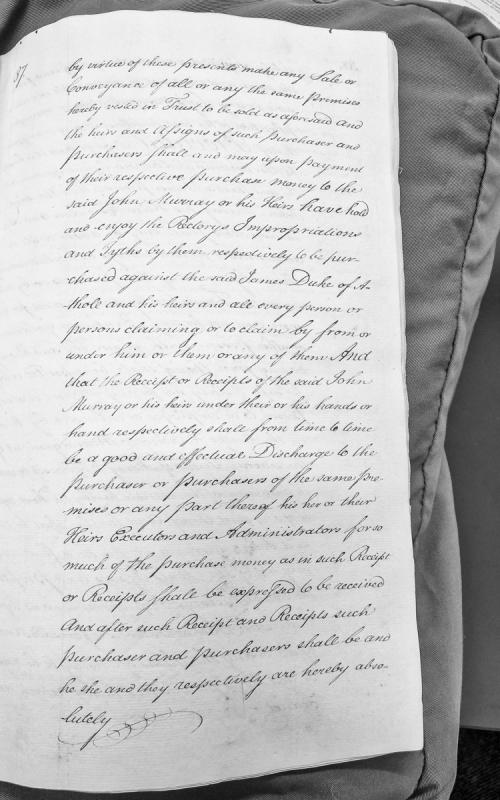 37
by virtue of these presents make any Sale or
Conveyance of all or any the same Premises
hereby vested in Trust to be sold as aforesaid and
the heirs and Assigns of such Purchaser and
Purchasers shall and may upon payment
of their respective purchase money to the
said John Murray or his Heirs have hold
and enjoy the Rectorys Impropriations
and Tyths by them respectively to be pur-
chased against the said James Duke of A-
thole and his heirs and all every person or
persons claiming or to claim by from or
under him or them or any of them And
that the Receipt or Receipts of the said John
Murray or his heirs under their or his hands or
hand respectively shall from time to time
be a good and effectual Discharge to the
Purchaser or purchasers of the same Pre-
mises or any part thereof his her or their
Heirs Executors and Administrators for so
much of the purchase money as in such Receipt
or Receipts shall be expressed to be received
And after such Receipt and Receipts such
purchaser and purchasers shall be and
he she and they respectively are hereby abso-
lutely